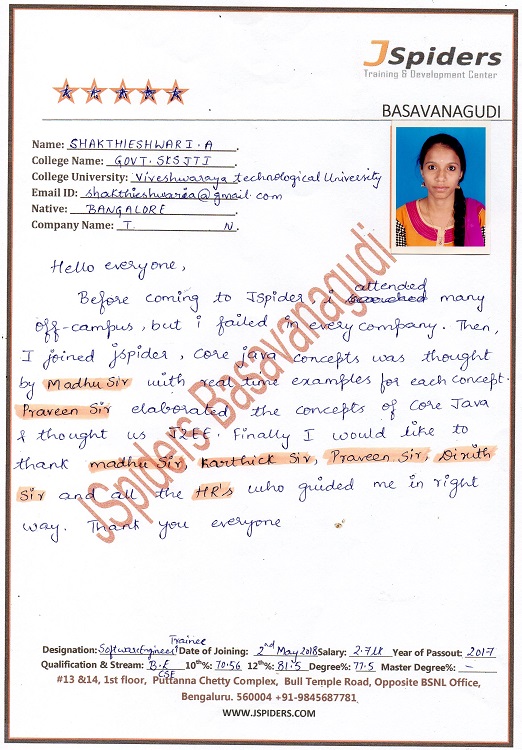 JSpiders
Training & Development Center
BASAVANAGUDI
Name: SHAKTHIESHWARI.A
College Name: GOVT. SKSJTI
College University: Visveshwaraya technological University
Email ID: shakthieshwaria@gmail.com
Native: BANGALORE
Company Name: T. N.
Hello everyone,
Before coming to JSpider, i attended many
off-campus, but i failed in every company. Then,
I joined jspider, core java concepts was thought
by Madhu Sir with real time examples for each concept.
Praveen Sir elaborated the concepts of Core Java
& thought us J2EE. Finally I would like to
thank madhu Sir, Karthick Sir, Praveen Sir, Dirith
Sir and all the HR's who guided me in right
way. Thank you everyone
JSpiders Basavanagudi
Designation: Software Engineer Trainee Date of Joining: 2nd May 2018 Salary: 2.7LK Year of Passout: 2017
Qualification & Stream: B.E CSE 10th%: 70.56 12th%: 81.5 Degree%: 77.5 Master Degree%: -
#13 &14, 1st floor, Puttanna Chetty Complex, Bull Temple Road, Opposite BSNL Office,
Bengaluru. 560004 +91-9845687781
WWW.JSPIDERS.COM